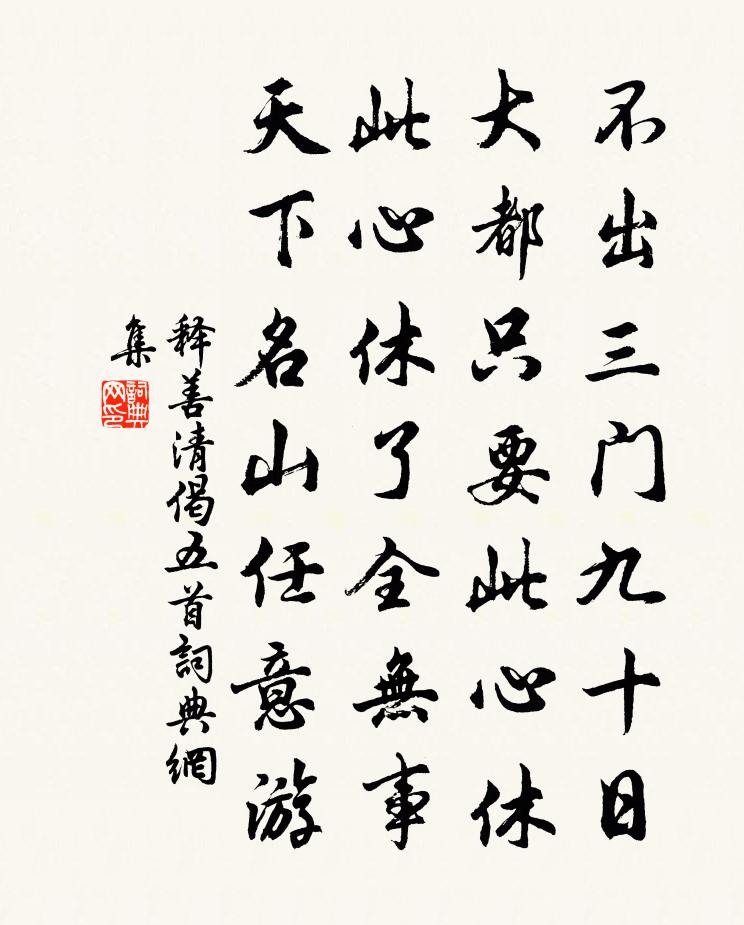 不出三门九十日
大都只要此心休
此心休了全無事
天下名山任意游
释善清偈五首詞典網
集
詞典网印